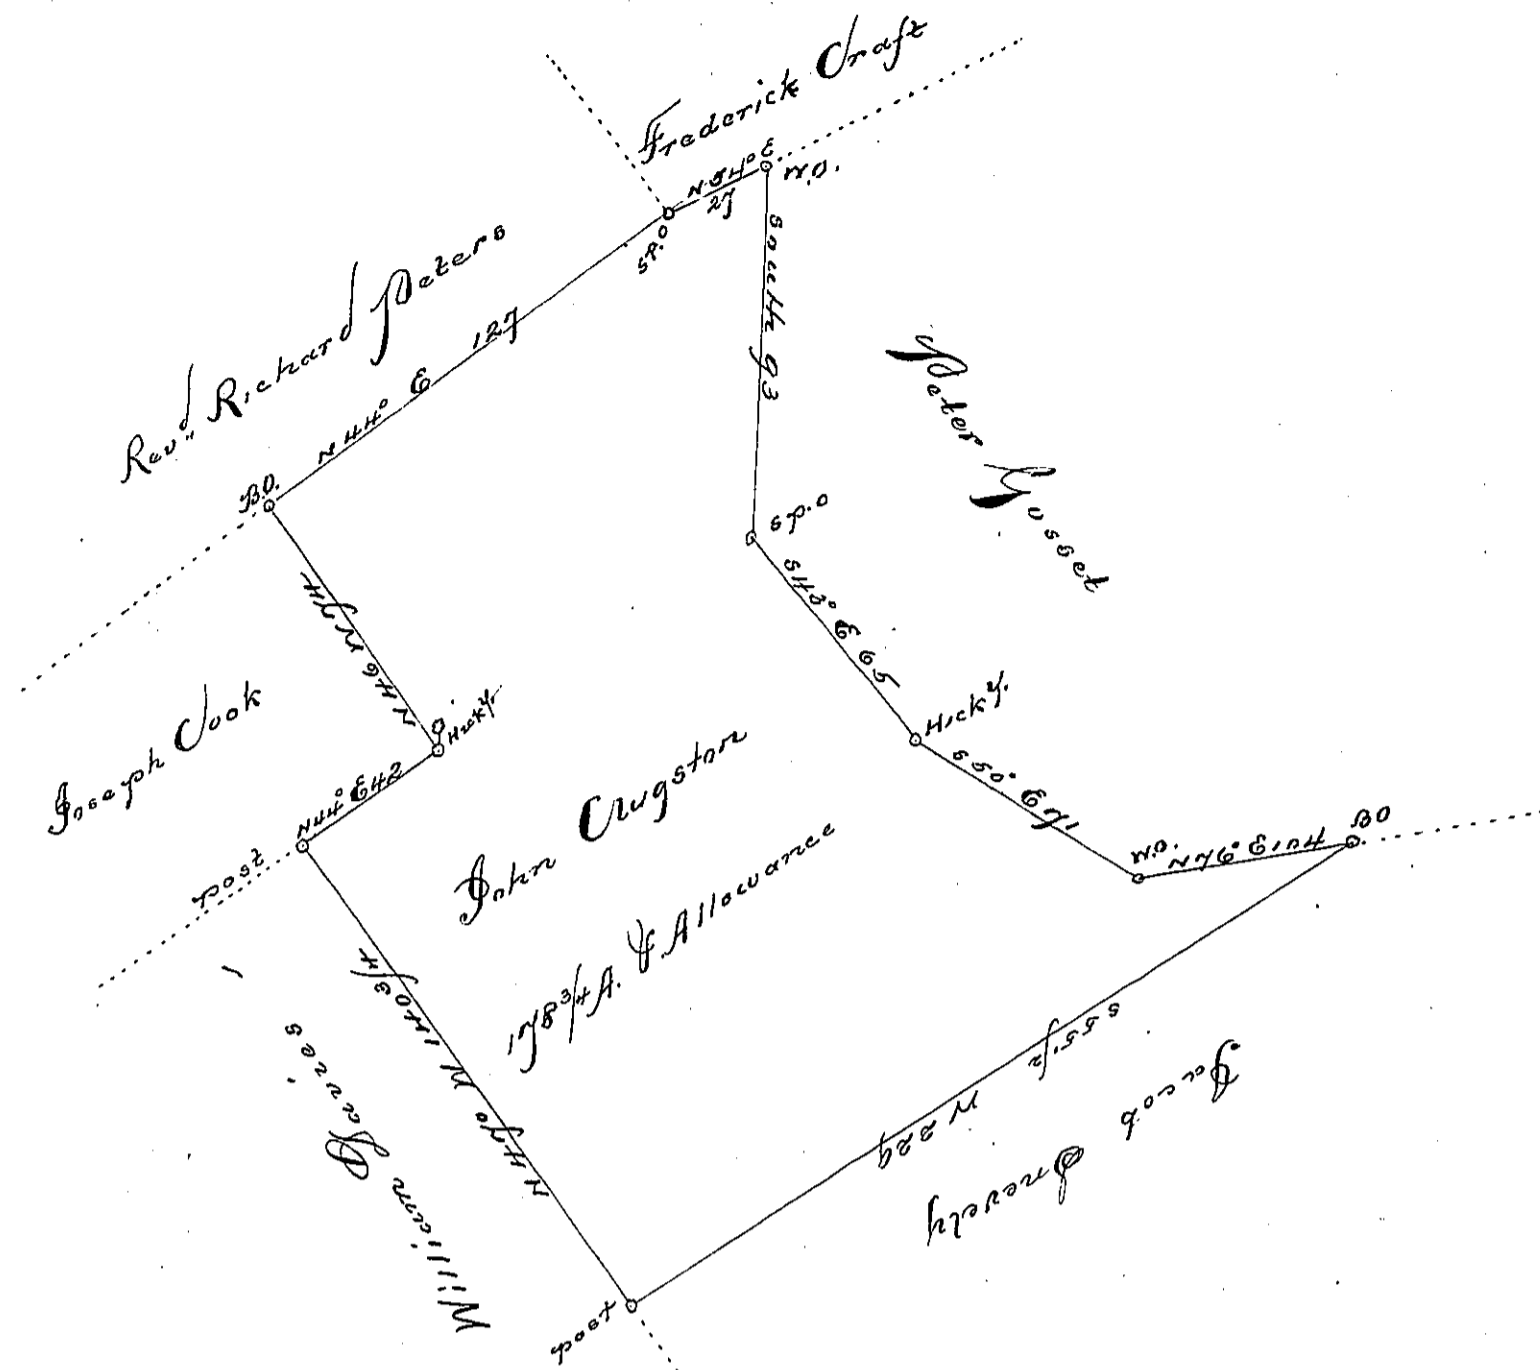 Frederick Craft
N 54° E
27
W.O.
SP.O
Rev.d Richard Peters
N 44° E 127
B.O.
South 93
Peter Gosset
SP.O
S 42° E 65
Hick.y
S 50° E 71
W.O.
N 76° E 104
BO
N 46 W 74
O
Hick.y
Joseph Cook
N 44° E 42
post
John Clugston
178 3/4 A. & Allowance
N 47° W 140 3/4
William Davies
S 55 1/2
W 229
Jacob Snevely
post